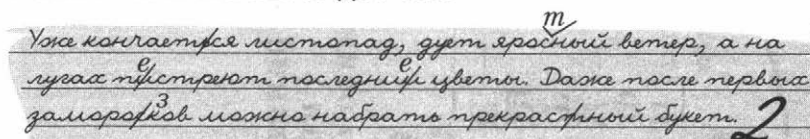 Уже кончаеться листопад, дует яросный ветер, а на
лугах пистреют последнии цветы. Даже после первых
заморосков можно набрать прекрастный букет. 2